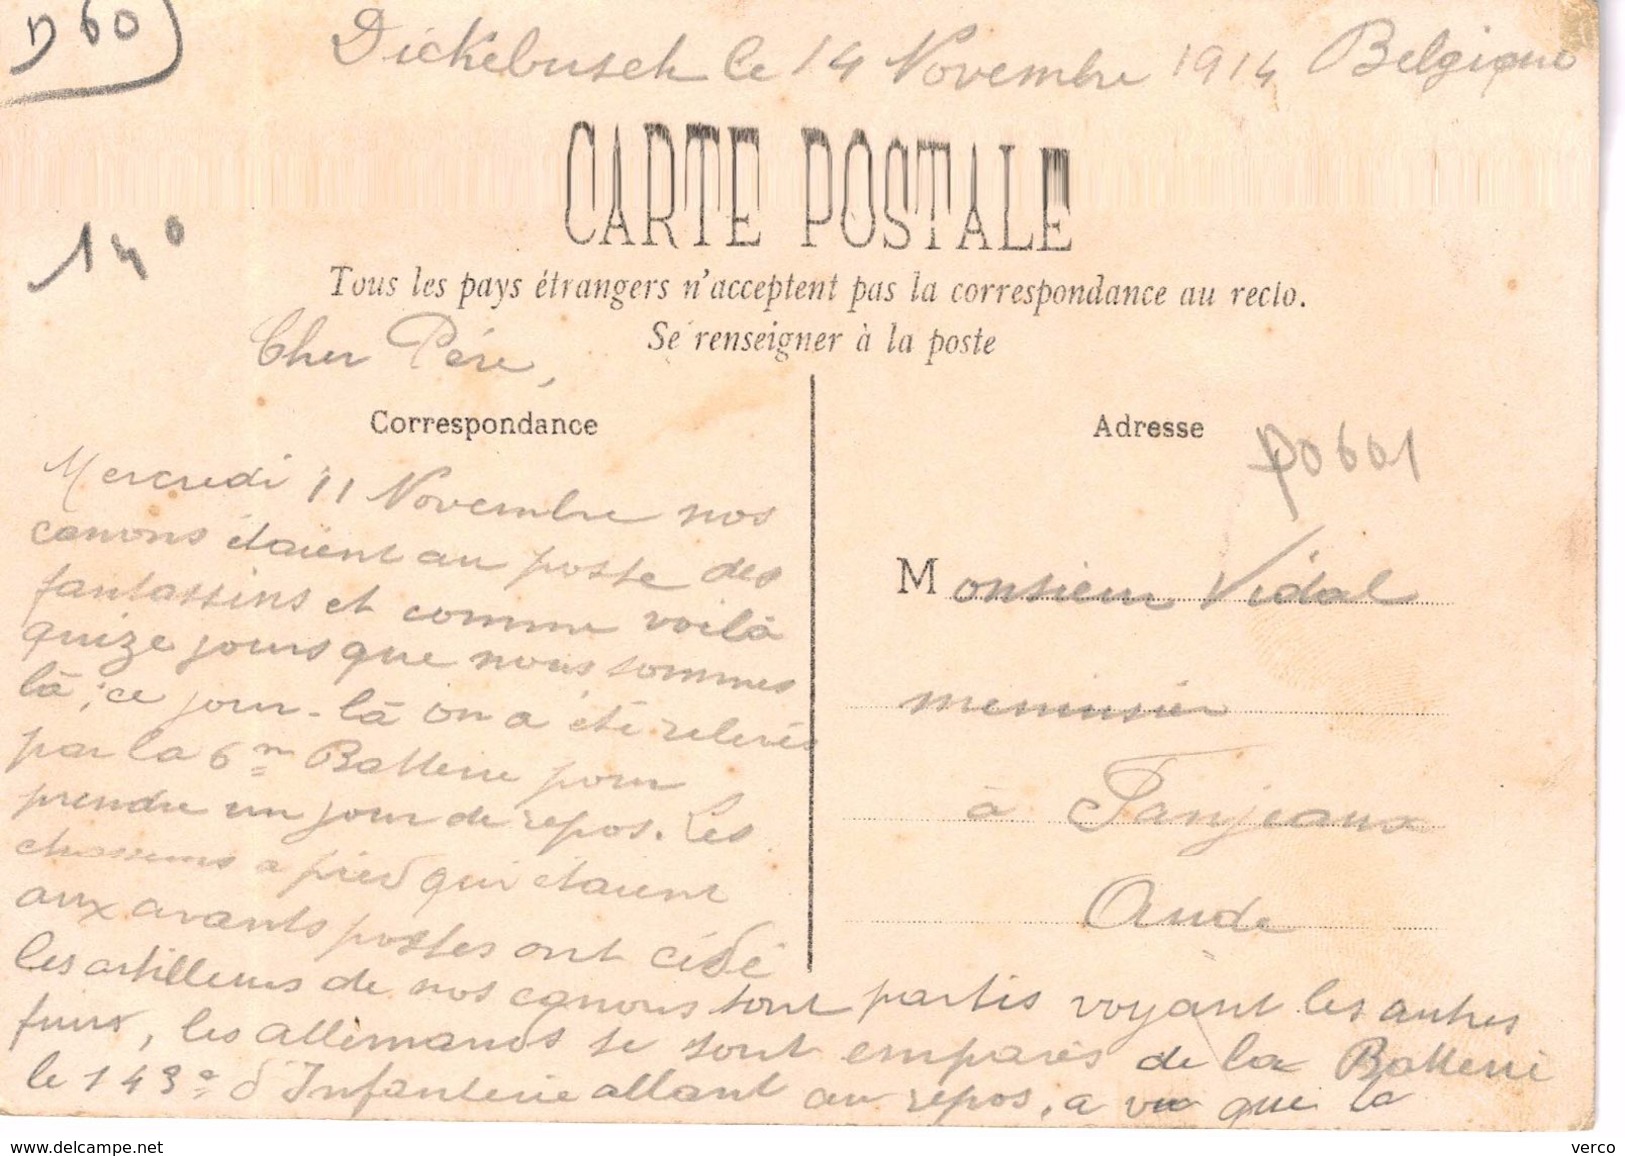 D60
Dickebusch le 14 Novembre 1914 Belgique
CARTE POSTALE
14°
Tous les pays étrangers n'acceptent pas la correspondance au recto.
Se renseigner à la poste
Cher Père,
Correspondance
Mercredi 11 Novembre nos
canons étaient au poste des
fantassins et comme voilà
quize jours que nous sommes
là, ce jour-là on a été relevés
par la 6me Batterie pour
prendre un jour de repos. Les
chasseurs a pied qui étaient
aux avants postes ont cédé
les artilleurs de nos canons sont partis voyant les autres
fuir, les allemands se sont emparés de la Batterie
le 143e d'Infanterie allant au repos, a vu que la
Adresse
D0601
Monsieur Vidal
menuisier
à Fanjeaux
Aude
verco